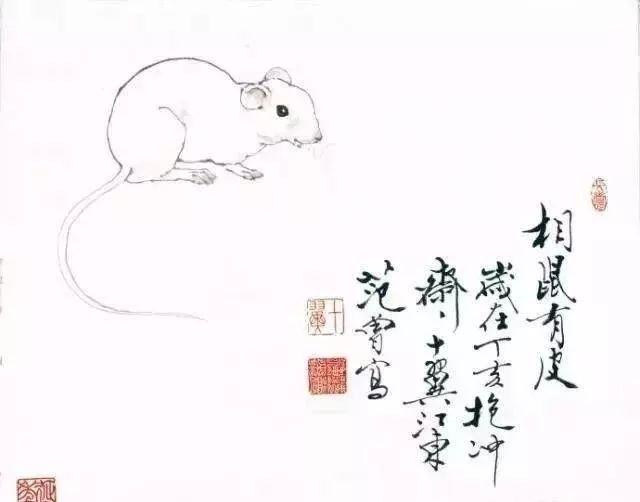 相鼠有皮
歲在丁亥抱沖
齋、十翼江東
范曾寫
十翼